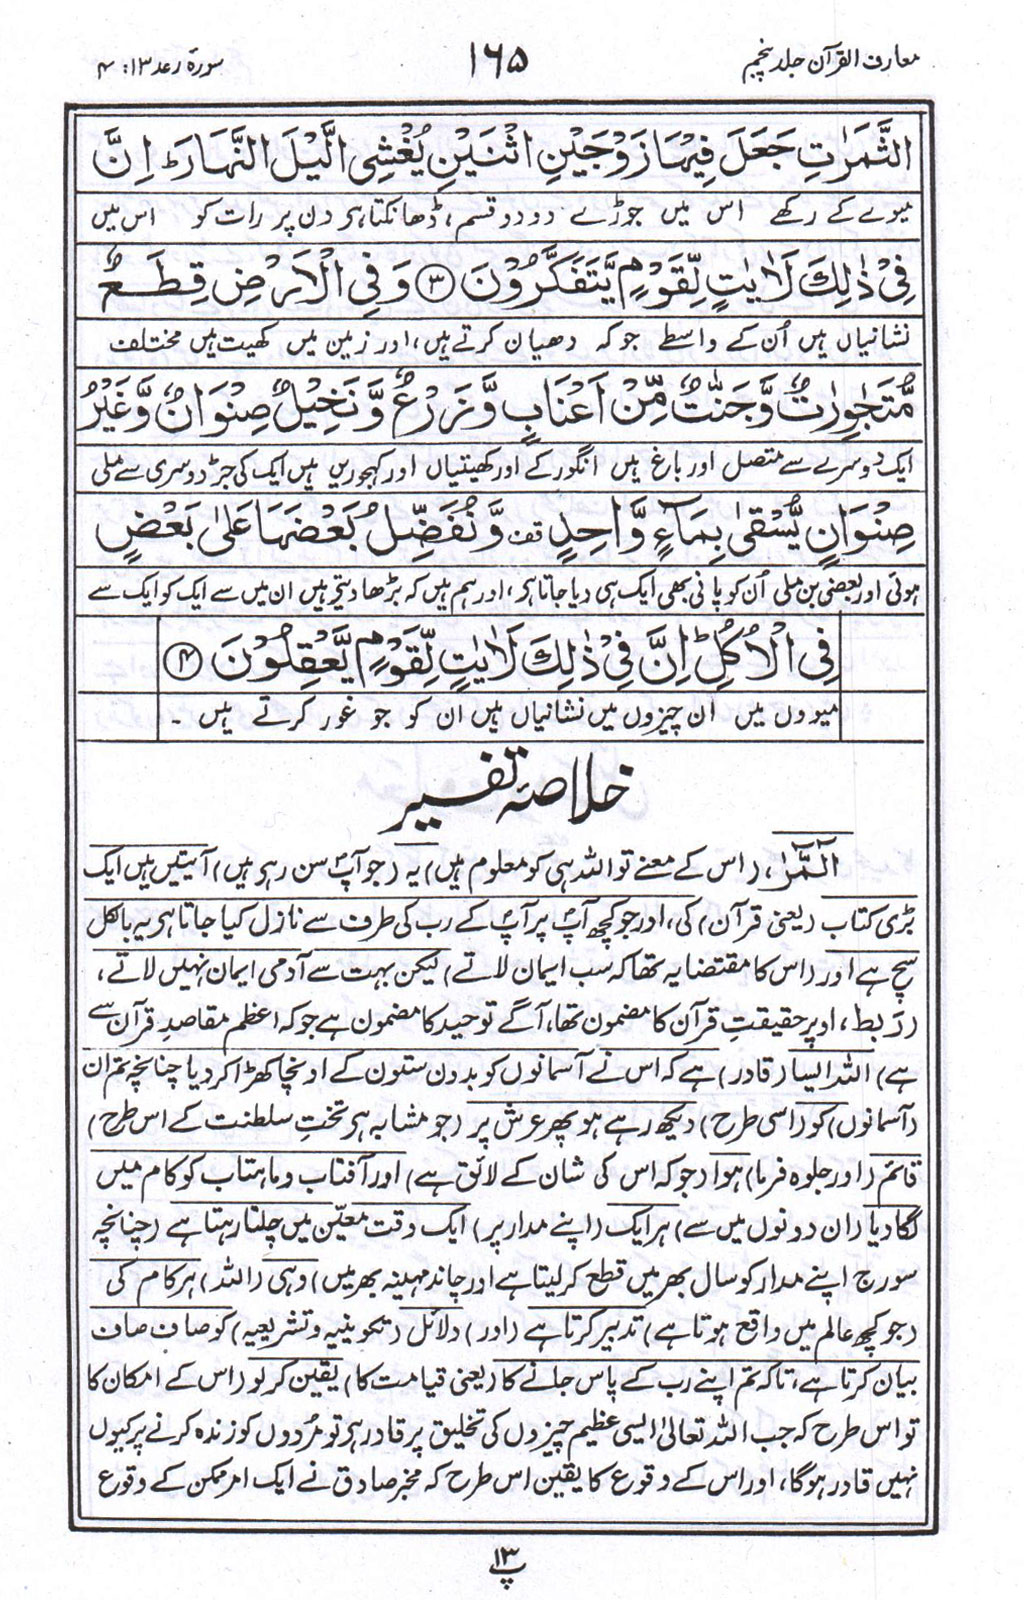 معارف القرآن جلد پنجم
۱۶۵
سورۃ رعد ۱۳: ۴
الثَّمَرٰتِ جَعَلَ فِیْهَا زَوْجَیْنِ اثْنَیْنِ یُغْشِی الَّیْلَ النَّهَارَ ؕ اِنَّ
میوے کے رکھے اس میں جوڑے دو دو قسم، ڈھانکتا ہی دن پر رات کو اس میں
فِیْ ذٰلِكَ لَاٰیٰتٍ لِّقَوْمٍ یَّتَفَكَّرُوْنَ ۝۳ وَ فِی الْاَرْضِ قِطَعٌ
نشانیاں ہیں اُن کے واسطے جو کہ دھیان کرتے ہیں، اور زمین میں کھیت ہیں مختلف
مُّتَجٰوِرٰتٌ وَّ جَنّٰتٌ مِّنْ اَعْنَابٍ وَّ زَرْعٌ وَّ نَخِیْلٌ صِنْوَانٌ وَّ غَیْرُ
ایک دوسرے سے متصل اور باغ ہیں انگور کے اور کھیتیاں اور کھجوریں ہیں ایک کی جڑ دوسری سے ملی
صِنْوَانٍ یُّسْقٰی بِمَآءٍ وَّاحِدٍ قف وَ نُفَضِّلُ بَعْضَهَا عَلٰی بَعْضٍ
ہوئی اور بعضی بن ملی اُن کو پانی بھی ایک ہی دیا جاتا ہی، اور ہم ہیں کہ بڑھا دیتے ہیں ان میں سے ایک کو ایک سے
فِی الْاُكُلِ ؕ اِنَّ فِیْ ذٰلِكَ لَاٰیٰتٍ لِّقَوْمٍ یَّعْقِلُوْنَ ۝۴
میووں میں ان چیزوں میں نشانیاں ہیں ان کو جو غور کرتے ہیں ۔
خلاصۂ تفسیر
الٓمّٓرٰ، (اس کے معنے تو اللہ ہی کو معلوم ہیں) یہ (جو آپؐ سن رہی ہیں) آیتیں ہیں ایک
بڑی کتاب (یعنی قرآن) کی، اور جو کچھ آپؐ پر آپؐ کے رب کی طرف سے نازل کیا جاتا ہی یہ بالکل
سچ ہے اور (اس کا مقتضا یہ تھا کہ سب ایمان لاتے) لیکن بہت سے آدمی ایمان نہیں لاتے،
(ربط، اوپر حقیقتِ قرآن کا مضمون تھا، آگے توحید کا مضمون ہے جو کہ اعظم مقاصدِ قرآن سے
ہے) اللہ ایسا (قادر) ہے کہ اس نے آسمانوں کو بدون ستون کے اونچا کھڑا کر دیا چنانچہ تم ان
(آسمانوں) کو (اسی طرح) دیکھ رہے ہو پھر عرش پر (جو مشابہ ہی تختِ سلطنت کے اس طرح)
قائم (اور جلوہ فرما) ہوا (جو کہ اس کی شان کے لائق ہے) اور آفتاب و ماہتاب کو کام میں
لگا دیا (ان دونوں میں سے) ہر ایک (اپنے مدار پر) ایک وقت معیّن میں چلتا رہتا ہے (چنانچہ
سورج اپنے مدار کو سال بھر میں قطع کر لیتا ہے اور چاند مہینہ بھر میں) وہی (اللہ) ہر کام کی
(جو کچھ عالم میں واقع ہوتا ہے) تدبیر کرتا ہے (اور) دلائل (تکوینیہ و تشریعیہ) کو صاف صاف
بیان کرتا ہے، تاکہ تم اپنے رب کے پاس جانے کا (یعنی قیامت کا) یقین کر لو (اس کے امکان کا
تو اس طرح کہ جب اللہ تعالیٰ ایسی عظیم چیزوں کی تخلیق پر قادر ہی تو مُردوں کو زندہ کرنے پر کیوں
نہیں قادر ہوگا، اور اس کے وقوع کا یقین اس طرح کہ مخبر صادق نے ایک امر ممکن کے وقوع
پ۱۳